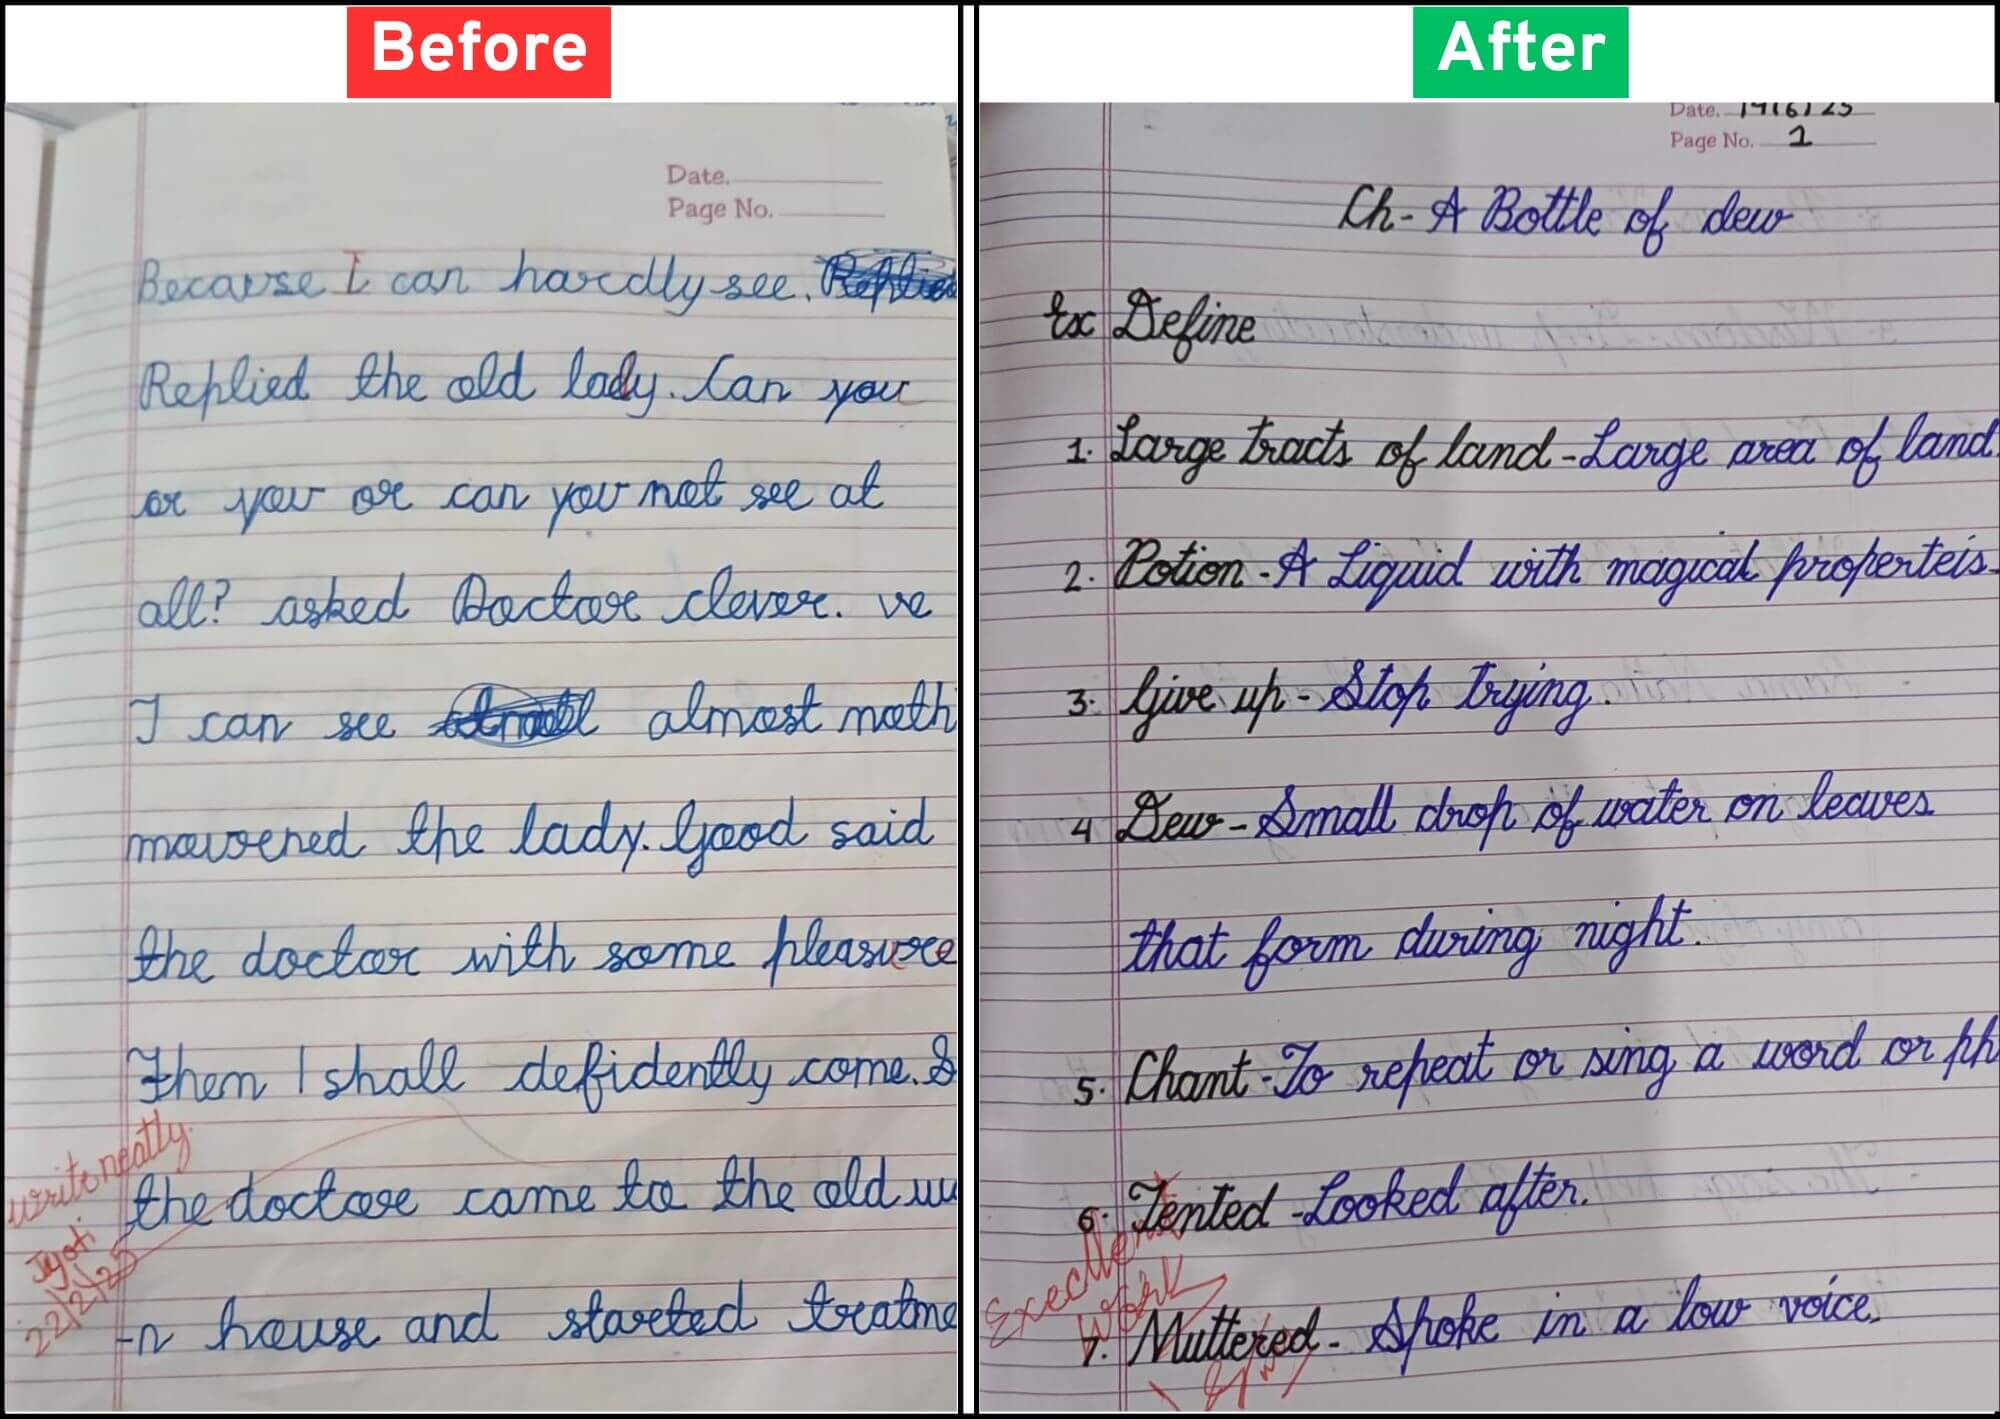 Before
Date.
Page No.
Because I can hardly see.
Replied the old lady. Can you
or you or can you not see at
all? asked Doctor clever. ve
I can see almost noth
mouvened the lady. Good said
the doctor with some pleasure
Then I shall defidently come. S
write neatly
the doctor came to the old
Jyoti
22/2/25
-n house and started treatme
After
Date. 19/6/25
Page No. 1
Ch- A Bottle of dew
Ex Define
1. Large tracts of land - Large area of land
2. Potion - A Liquid with magical properteis.
3. Give up - Stop trying.
4 Dew - Small drop of water on leaves
that form during night.
5. Chant - To repeat or sing a word or ph
6. Tented - Looked after.
Work
7. Muttered - Spoke in a low voice.